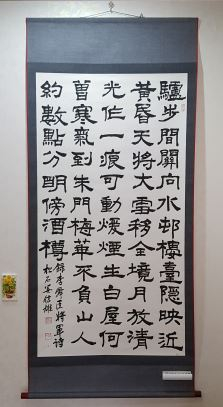 驢步間關向水邨樓臺隱映近
黃昏天將大雪務全境月放清
光作一痕可動煖煙生白屋何
曾寒氣到朱門梅華不負山人
約數點分明傍酒樽
錄李舜臣將軍詩
松石姜信